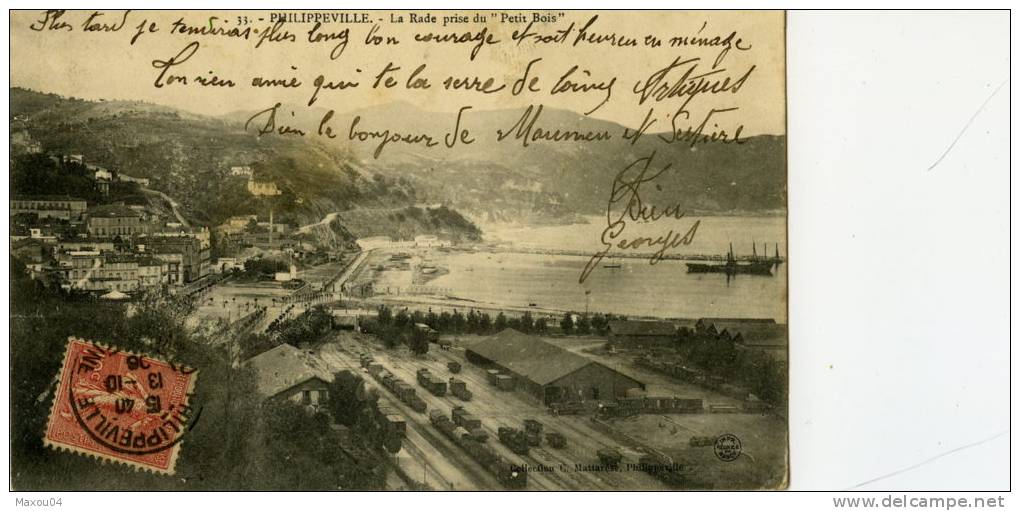 33. - PHILIPPEVILLE. - La Rade prise du "Petit Bois"
Plus tard je tendrais plus long bon courage et soit heureu en ménage
Ton vieu amie qui te la serre de loins Artigues
Bien le bonjour de Maumeu et Sertire
Dieu
Georges
PHILIPPEVILLE
15 40
13 - 10
06
Collection C. Mattarèse, Philippeville
Maxou04
delcampe.net